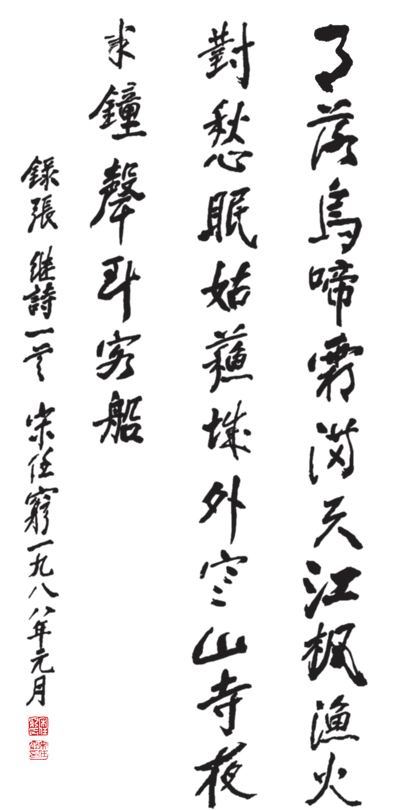 月落烏啼霜滿天江楓漁火
對愁眠姑蘓城外寒山寺夜
半鐘聲到客船
錄張继詩一首 宋任窮一九八八年元月